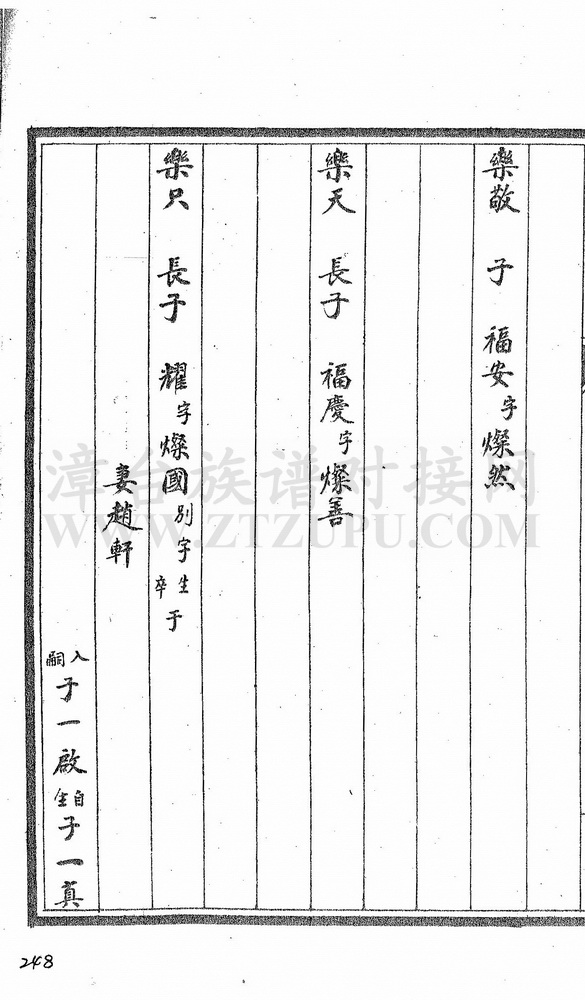 樂敬 子 福安字燦然
樂天 長子 福慶字燦善
樂只 長子 耀字燦國別字生卒于
妻趙軒
入嗣子一啟自生子一真
248
漳台族谱对接网
WWW.ZTZUPU.COM